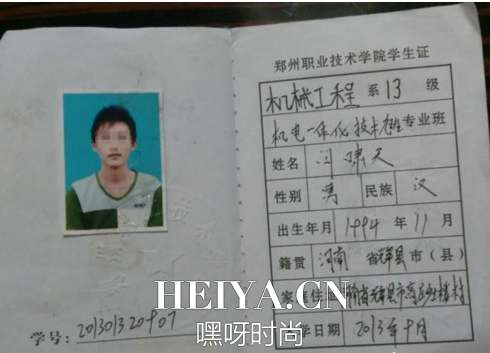 郑州职业技术学院学生证
机械工程 系 13 级
机电一体化技术 班 专业班
姓名 闫啸天
性别 男 民族 汉
出生年月 1994 年 11 月
籍贯 河南 省 辉县 市(县)
家 住 南省辉县市
学日期 2013年 月
学号:
HEIYA.CN
嘿呀时尚